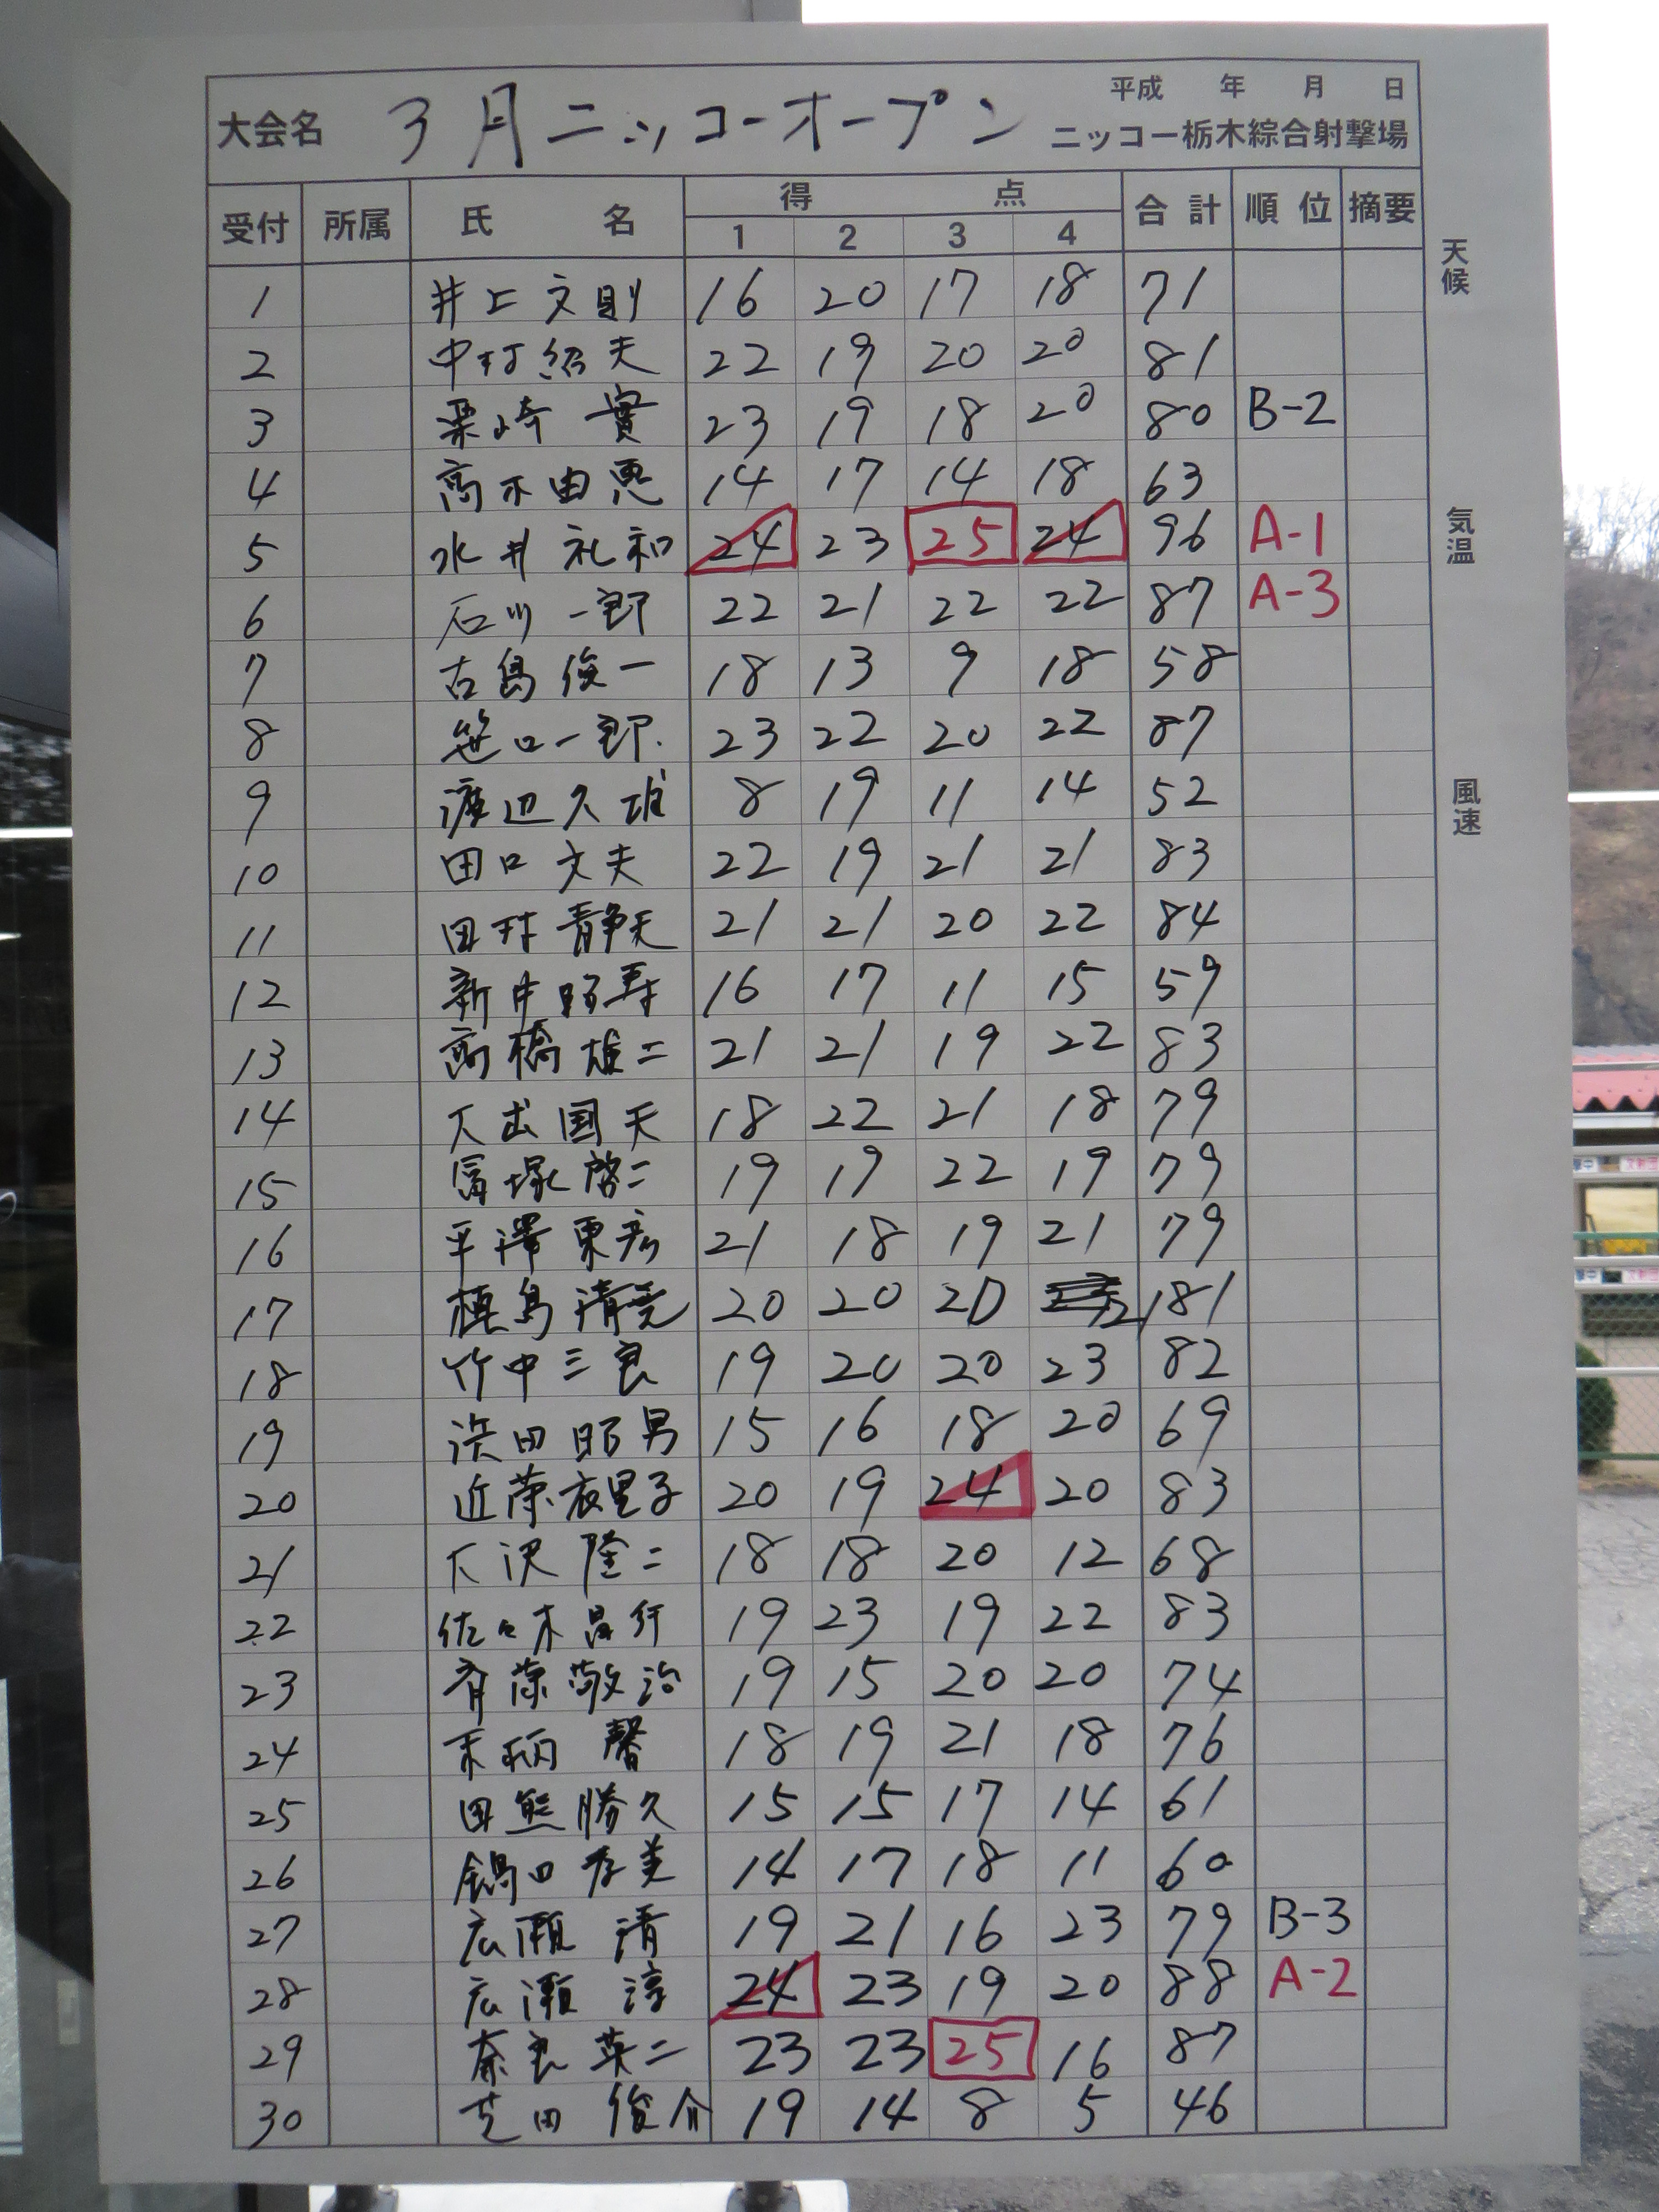 平成 年 月 日
大会名 3月ニッコーオープン ニッコー栃木綜合射撃場
受付 所属 氏 名 得 点 合計 順位 摘要
1 2 3 4
1 井上文則 16 20 17 18 71
2 中村紹夫 22 19 20 20 81
3 栗崎 實 23 19 18 20 80 B-2
4 高木由恵 14 17 14 18 63
5 水井礼和 24 23 25 24 96 A-1
6 石川一郎 22 21 22 22 87 A-3
7 古島俊一 18 13 9 18 58
8 笹口一郎 23 22 20 22 87
9 渡辺久雄 8 19 11 14 52
10 田口文夫 22 19 21 21 83
11 田村静夫 21 21 20 22 84
12 新井昭寿 16 17 11 15 59
13 高橋雄二 21 21 19 22 83
14 大出国夫 18 22 21 18 79
15 冨塚啓二 19 19 22 19 79
16 平澤東彦 21 18 19 21 79
17 植島清 20 20 20 21 81
18 竹中三良 19 20 20 23 82
19 浜田昭男 15 16 18 20 69
20 近藤衣里子 20 19 24 20 83
21 大沢隆二 18 18 20 12 68
22 佐々木昌行 19 23 19 22 83
23 斉藤敬治 19 15 20 20 74
24 馨 18 19 21 18 76
25 田熊勝久 15 15 17 14 61
26 鍋田孝美 14 17 18 11 60
27 広瀬 清 19 21 16 23 79 B-3
28 広瀬 淳 24 23 19 20 88 A-2
29 奈良英二 23 23 25 16 87
30 芝田 俊介 19 14 8 5 46
天候
気温
風速